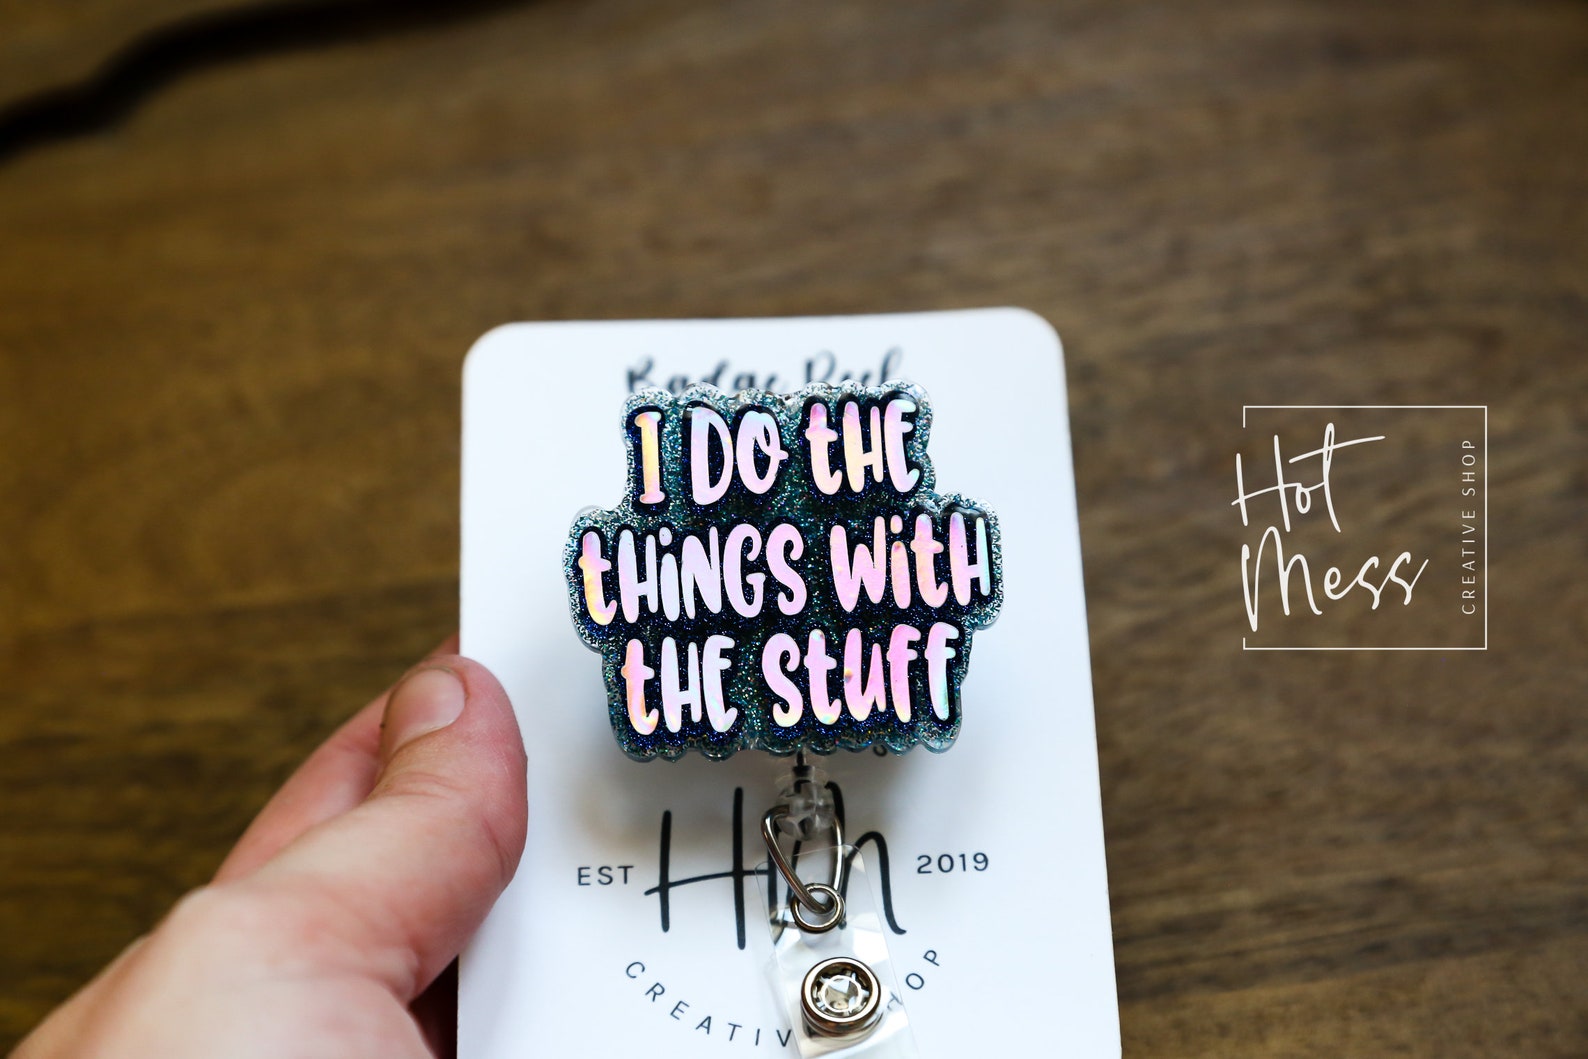 Badge Reel
I DO THE
THINGS WITH
THE STUFF
EST
2019
CREATIV
HOP
Hot
Mess
CREATIVE SHOP